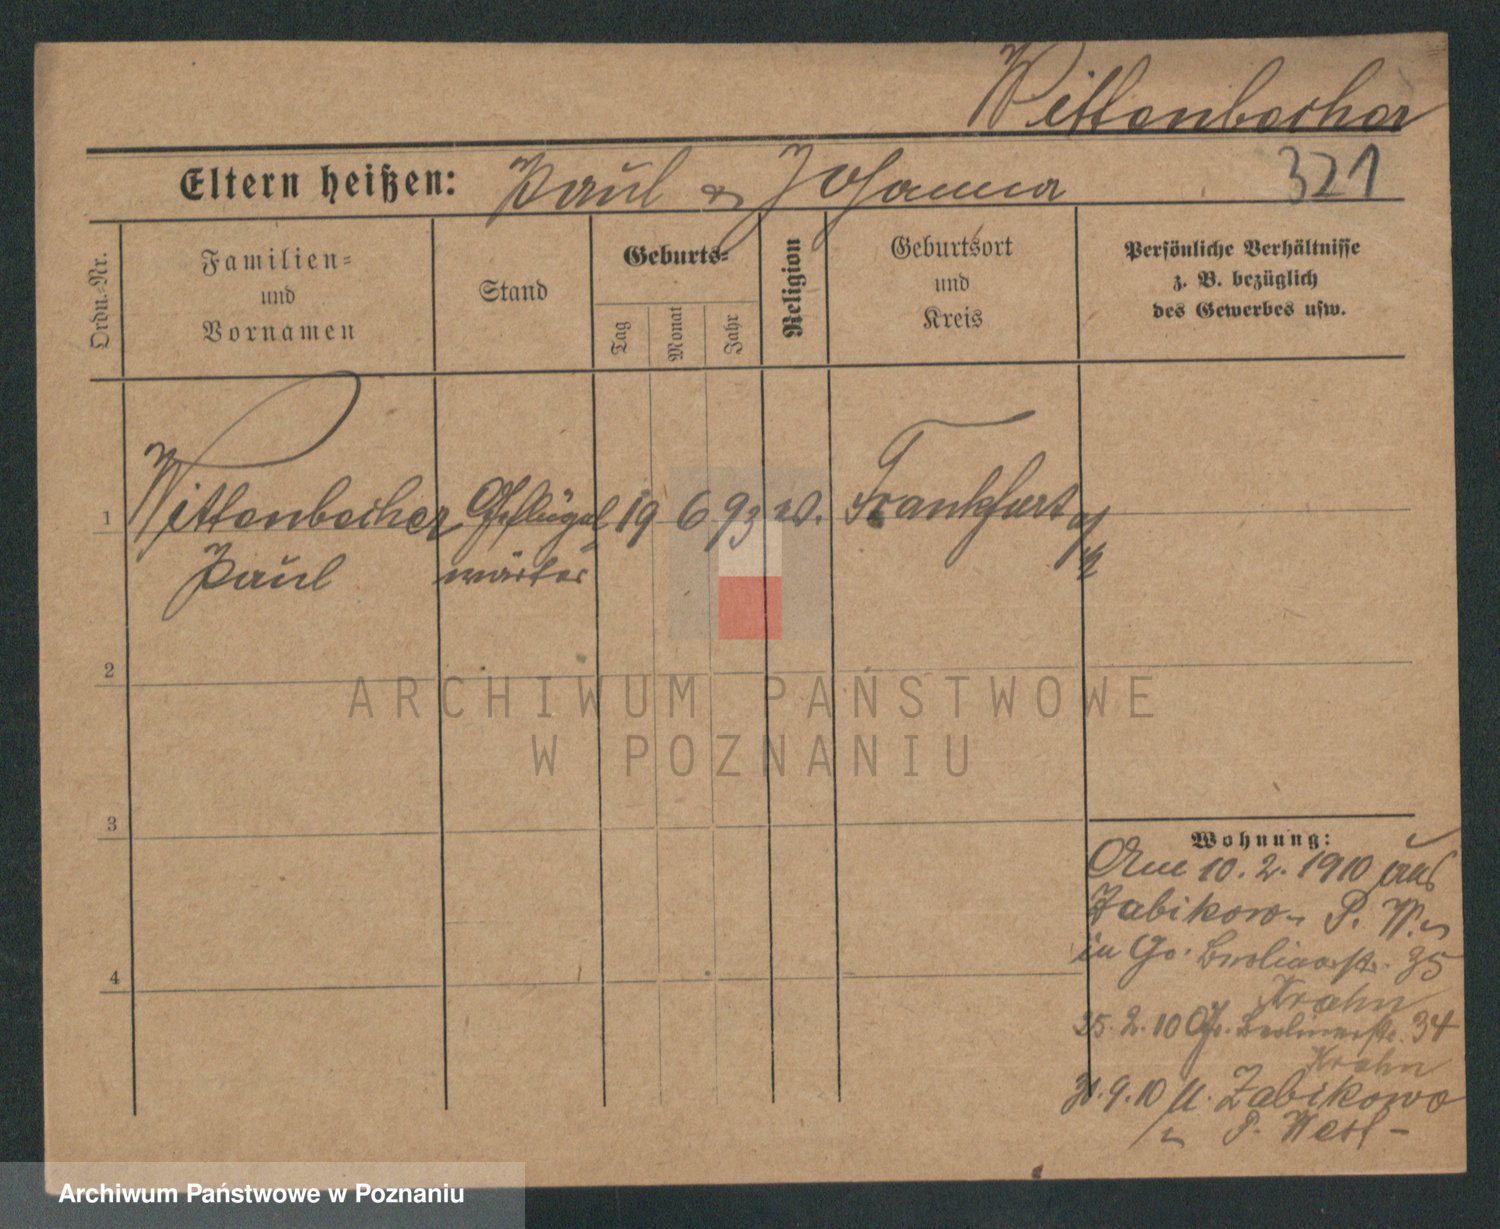 Wittenbecher
Eltern heißen: Paul & Johanna
321
Ordn.-Nr.
Familien-
und
Vornamen
Stand
Geburts-
Tag
Monat
Jahr
Religion
Geburtsort
und
Kreis
Persönliche Verhältnisse
z. B. bezüglich
des Gewerbes usw.
1
Wittenbecher
Paul
Geflügel
wärter
19 6 93
Frankfurt a/
2
3
4
Wohnung:
Am 10. 2. 1910 aus
Zabikowo P. W.
in Go. Berlinerstr. 35
Krahn
25. 2. 10 Go. Berlinerstr. 34
Krahn
30. 9. 10 n. Zabikowo
P. West
ARCHIWUM PAŃSTWOWE
W POZNANIU
Archiwum Państwowe w Poznaniu